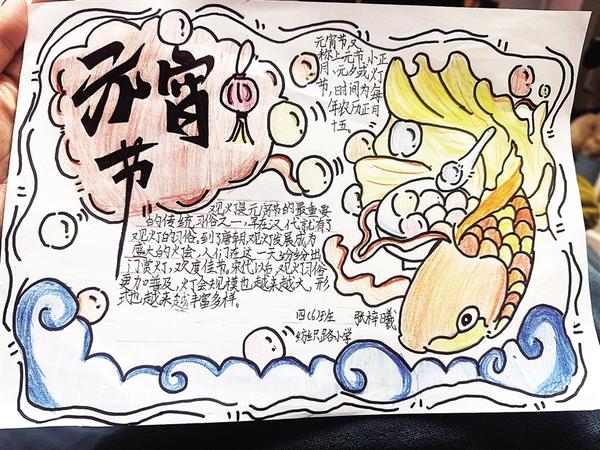 元宵
节
元宵节又
称上元节、小正
月、元夕或灯
节,时间为每
年农历正月
十五。
观灯是元宵节的最重要
的传统习俗之一,早在汉代就有了
观灯的习俗,到了唐朝,观灯发展成为
盛大的灯会,人们在这一天纷纷出
门赏灯,欢度佳节。宋代以后,观灯习俗
更加普及,灯会规模也越来越大,形
式也越来越丰富多样。
四(6)班 张梓曦
纺织路小学